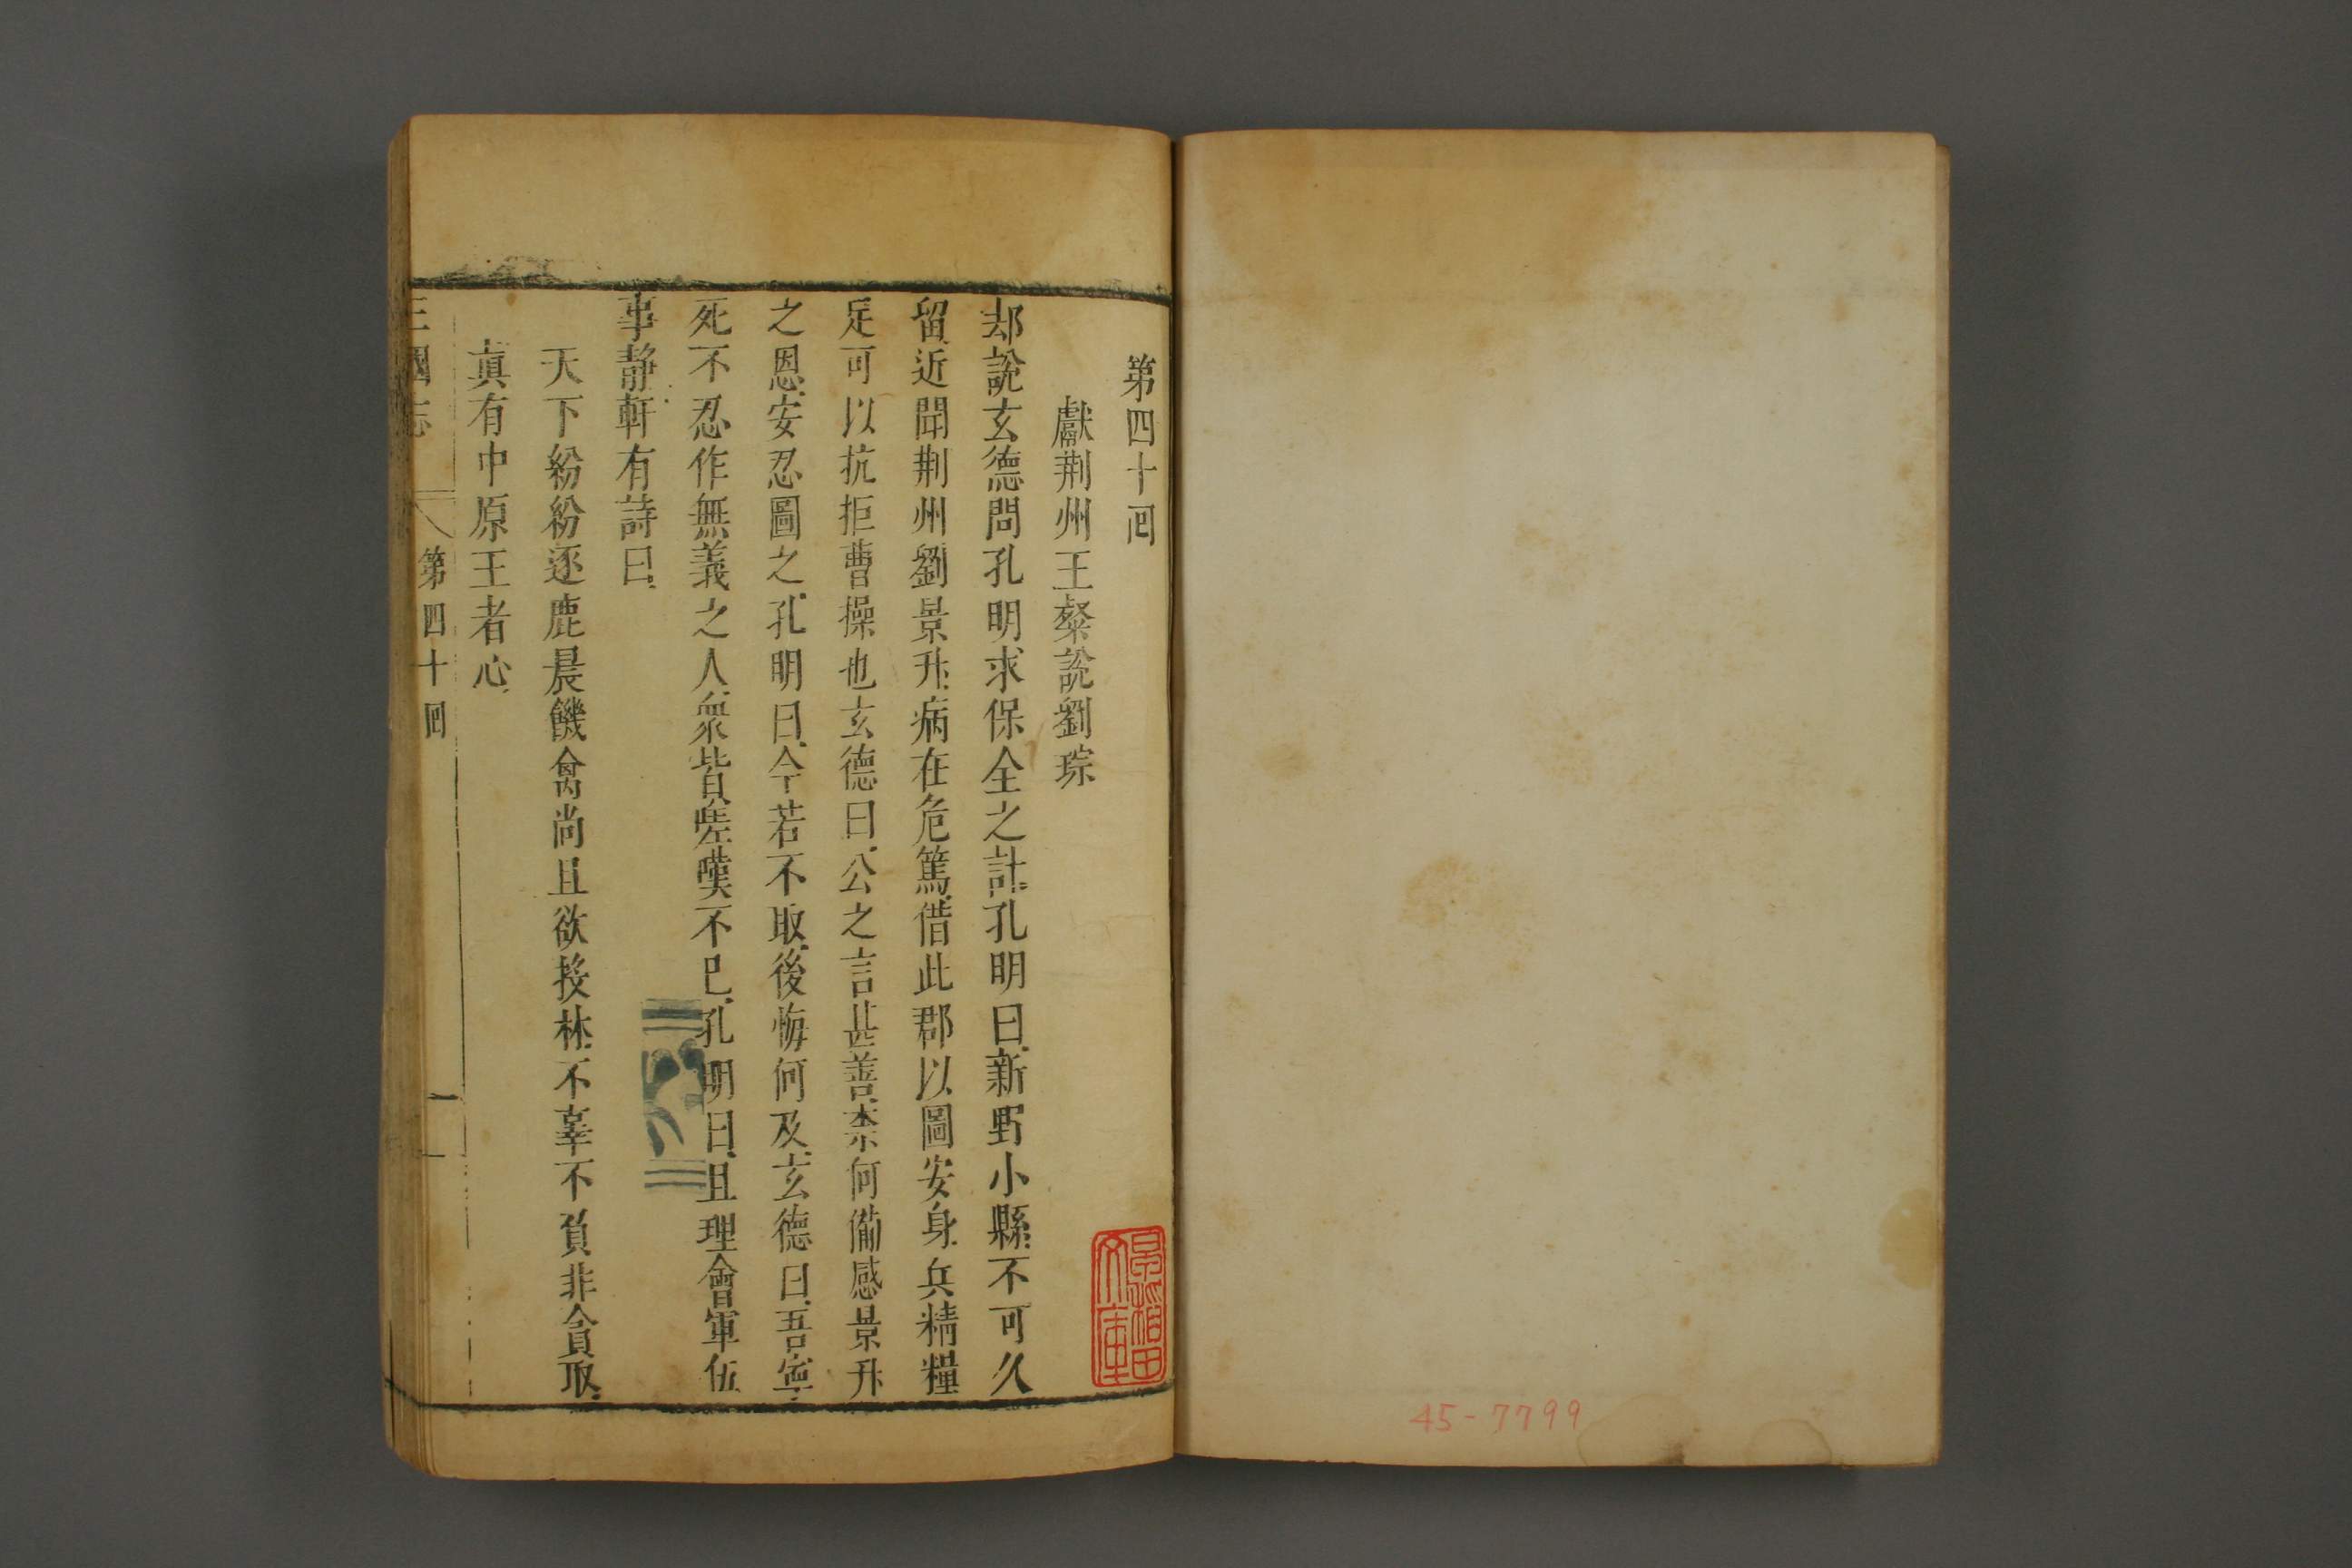 第四十回
獻荆州王粲說劉琮
却說玄德問孔明求保全之計孔明曰新野小縣不可久
留近聞荆州劉景升病在危篤借此郡以圖安身兵精糧
足可以抗拒曹操也玄德曰公之言甚善柰何備感景升
之恩安忍圖之孔明曰今若不取後悔何及玄德曰吾寧
死不忍作無義之人衆皆嗟嘆不已孔明曰且理會軍伍
事静軒有詩曰
天下紛紛逐鹿晨饑禽尚且欲投林不辜不負非貪取
真有中原王者心
三國志 第四十回 一
早稲田文庫
45-7799